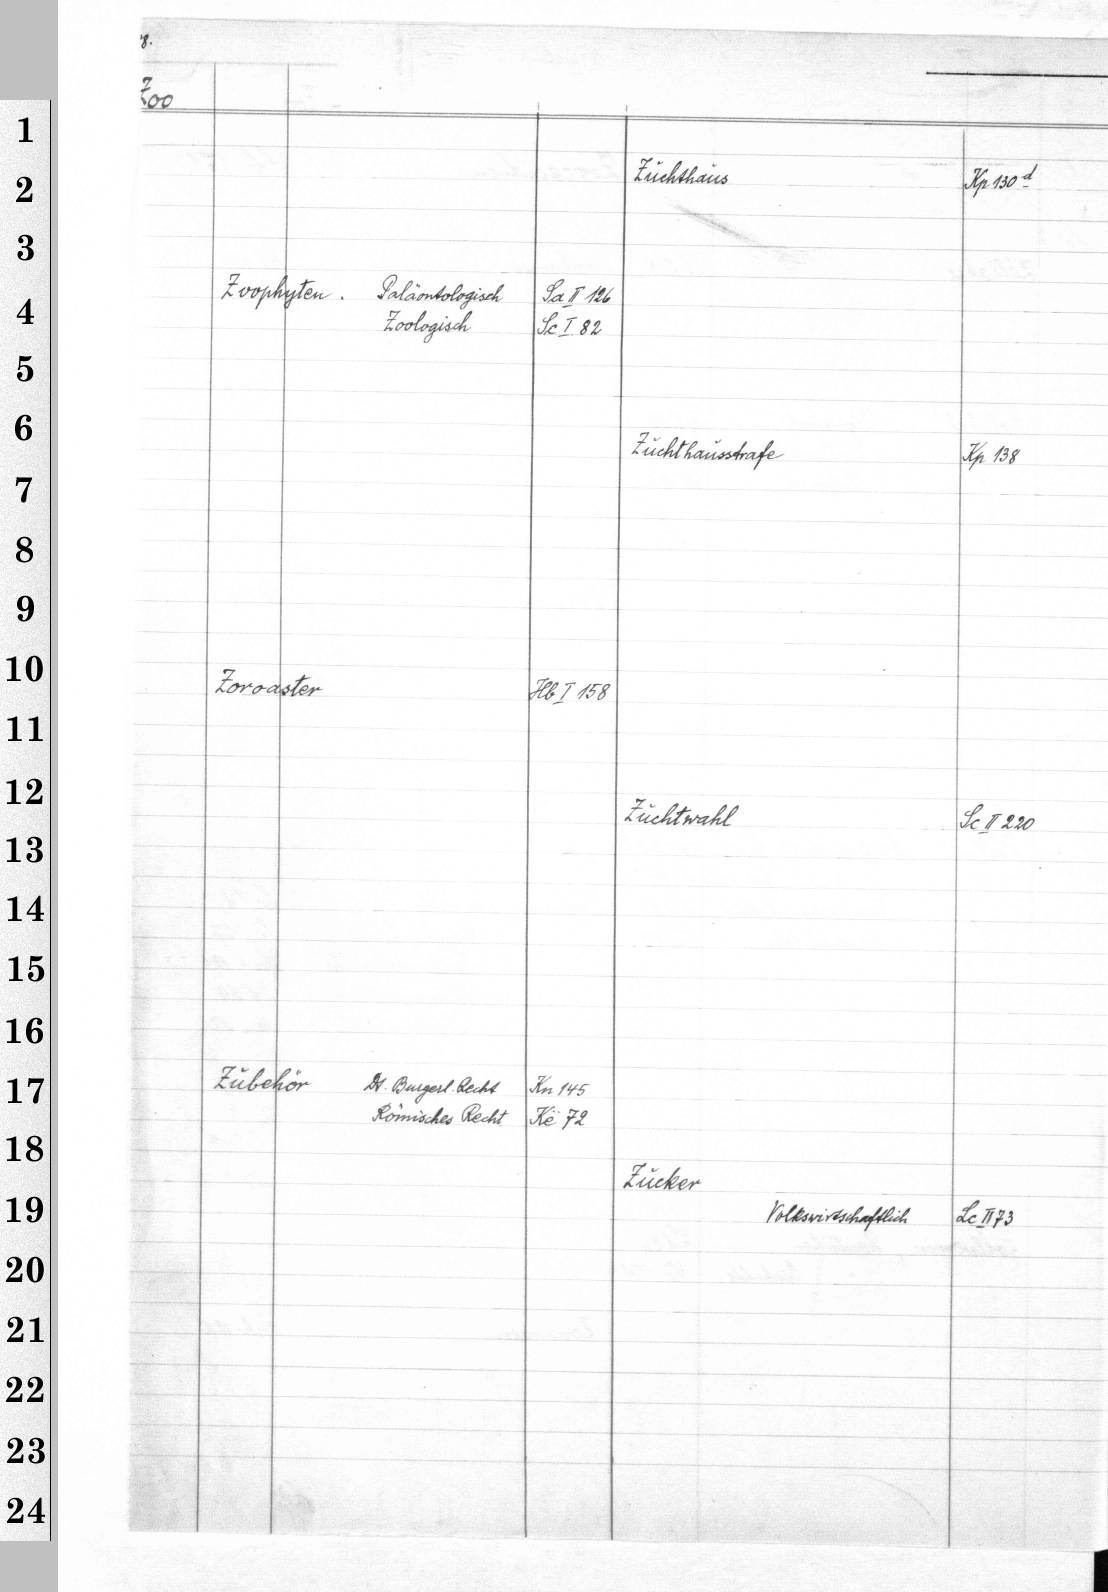 8.
Zoo
Zoophyten. Paläontologisch Sa II 126
Zoologisch Sc I 82
Zoroaster Hb I 158
Zubehör Dt. Burgerl. Recht Kn 145
Römisches Recht Ke 72
Zuchthaus Kp 130 d
Zuchthausstrafe Kp 138
Zuchtwahl Sc II 220
Zucker
Volkswirtschaftlich Lc II 73
1
2
3
4
5
6
7
8
9
10
11
12
13
14
15
16
17
18
19
20
21
22
23
24